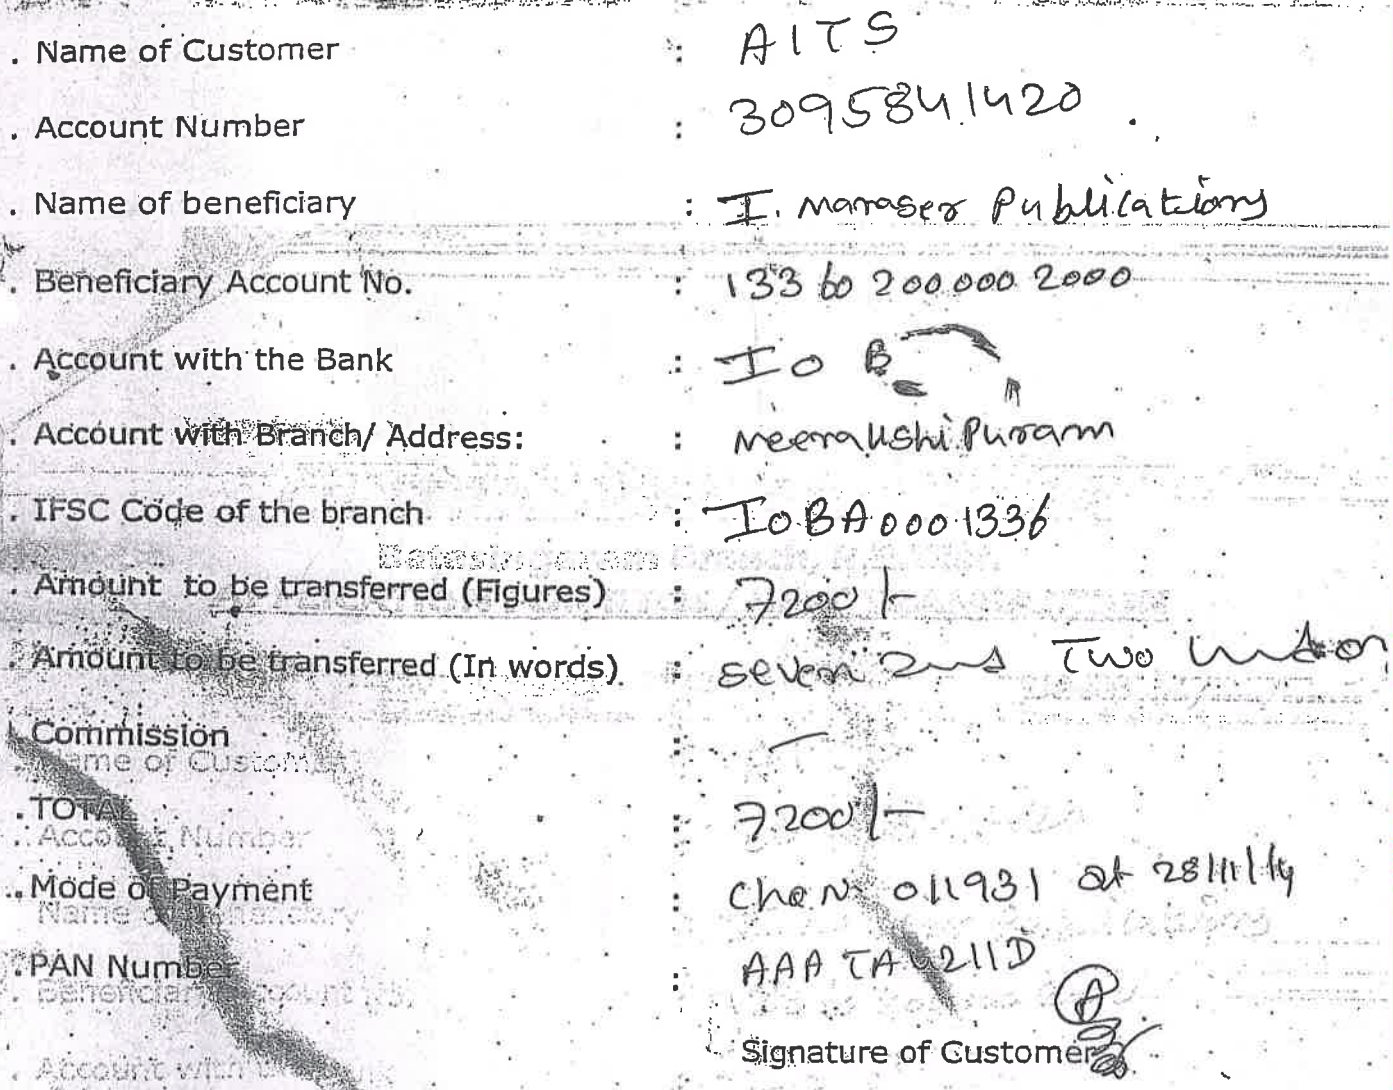 . Name of Customer : AITS
. Account Number : 30958411420 .
. Name of beneficiary : I. manager Publications
. Beneficiary Account No. : 133 60 200 000 2000
. Account with the Bank : IOB
. Account with Branch/ Address: : meenakshiPuram
. IFSC Code of the branch : IOBA0001336
. Amount to be transferred (Figures) : 7200/-
. Amount to be transferred (In words) : seven Two
. Commission : —
Name of Customer
. TOTAL : 7200/-
. Account Number
. Mode of Payment : Che No 011931 at 28/11/14
. Name of beneficiary
. PAN Number : AAATA4211D
. Beneficiary Account No.
Signature of Customer
. Account with the